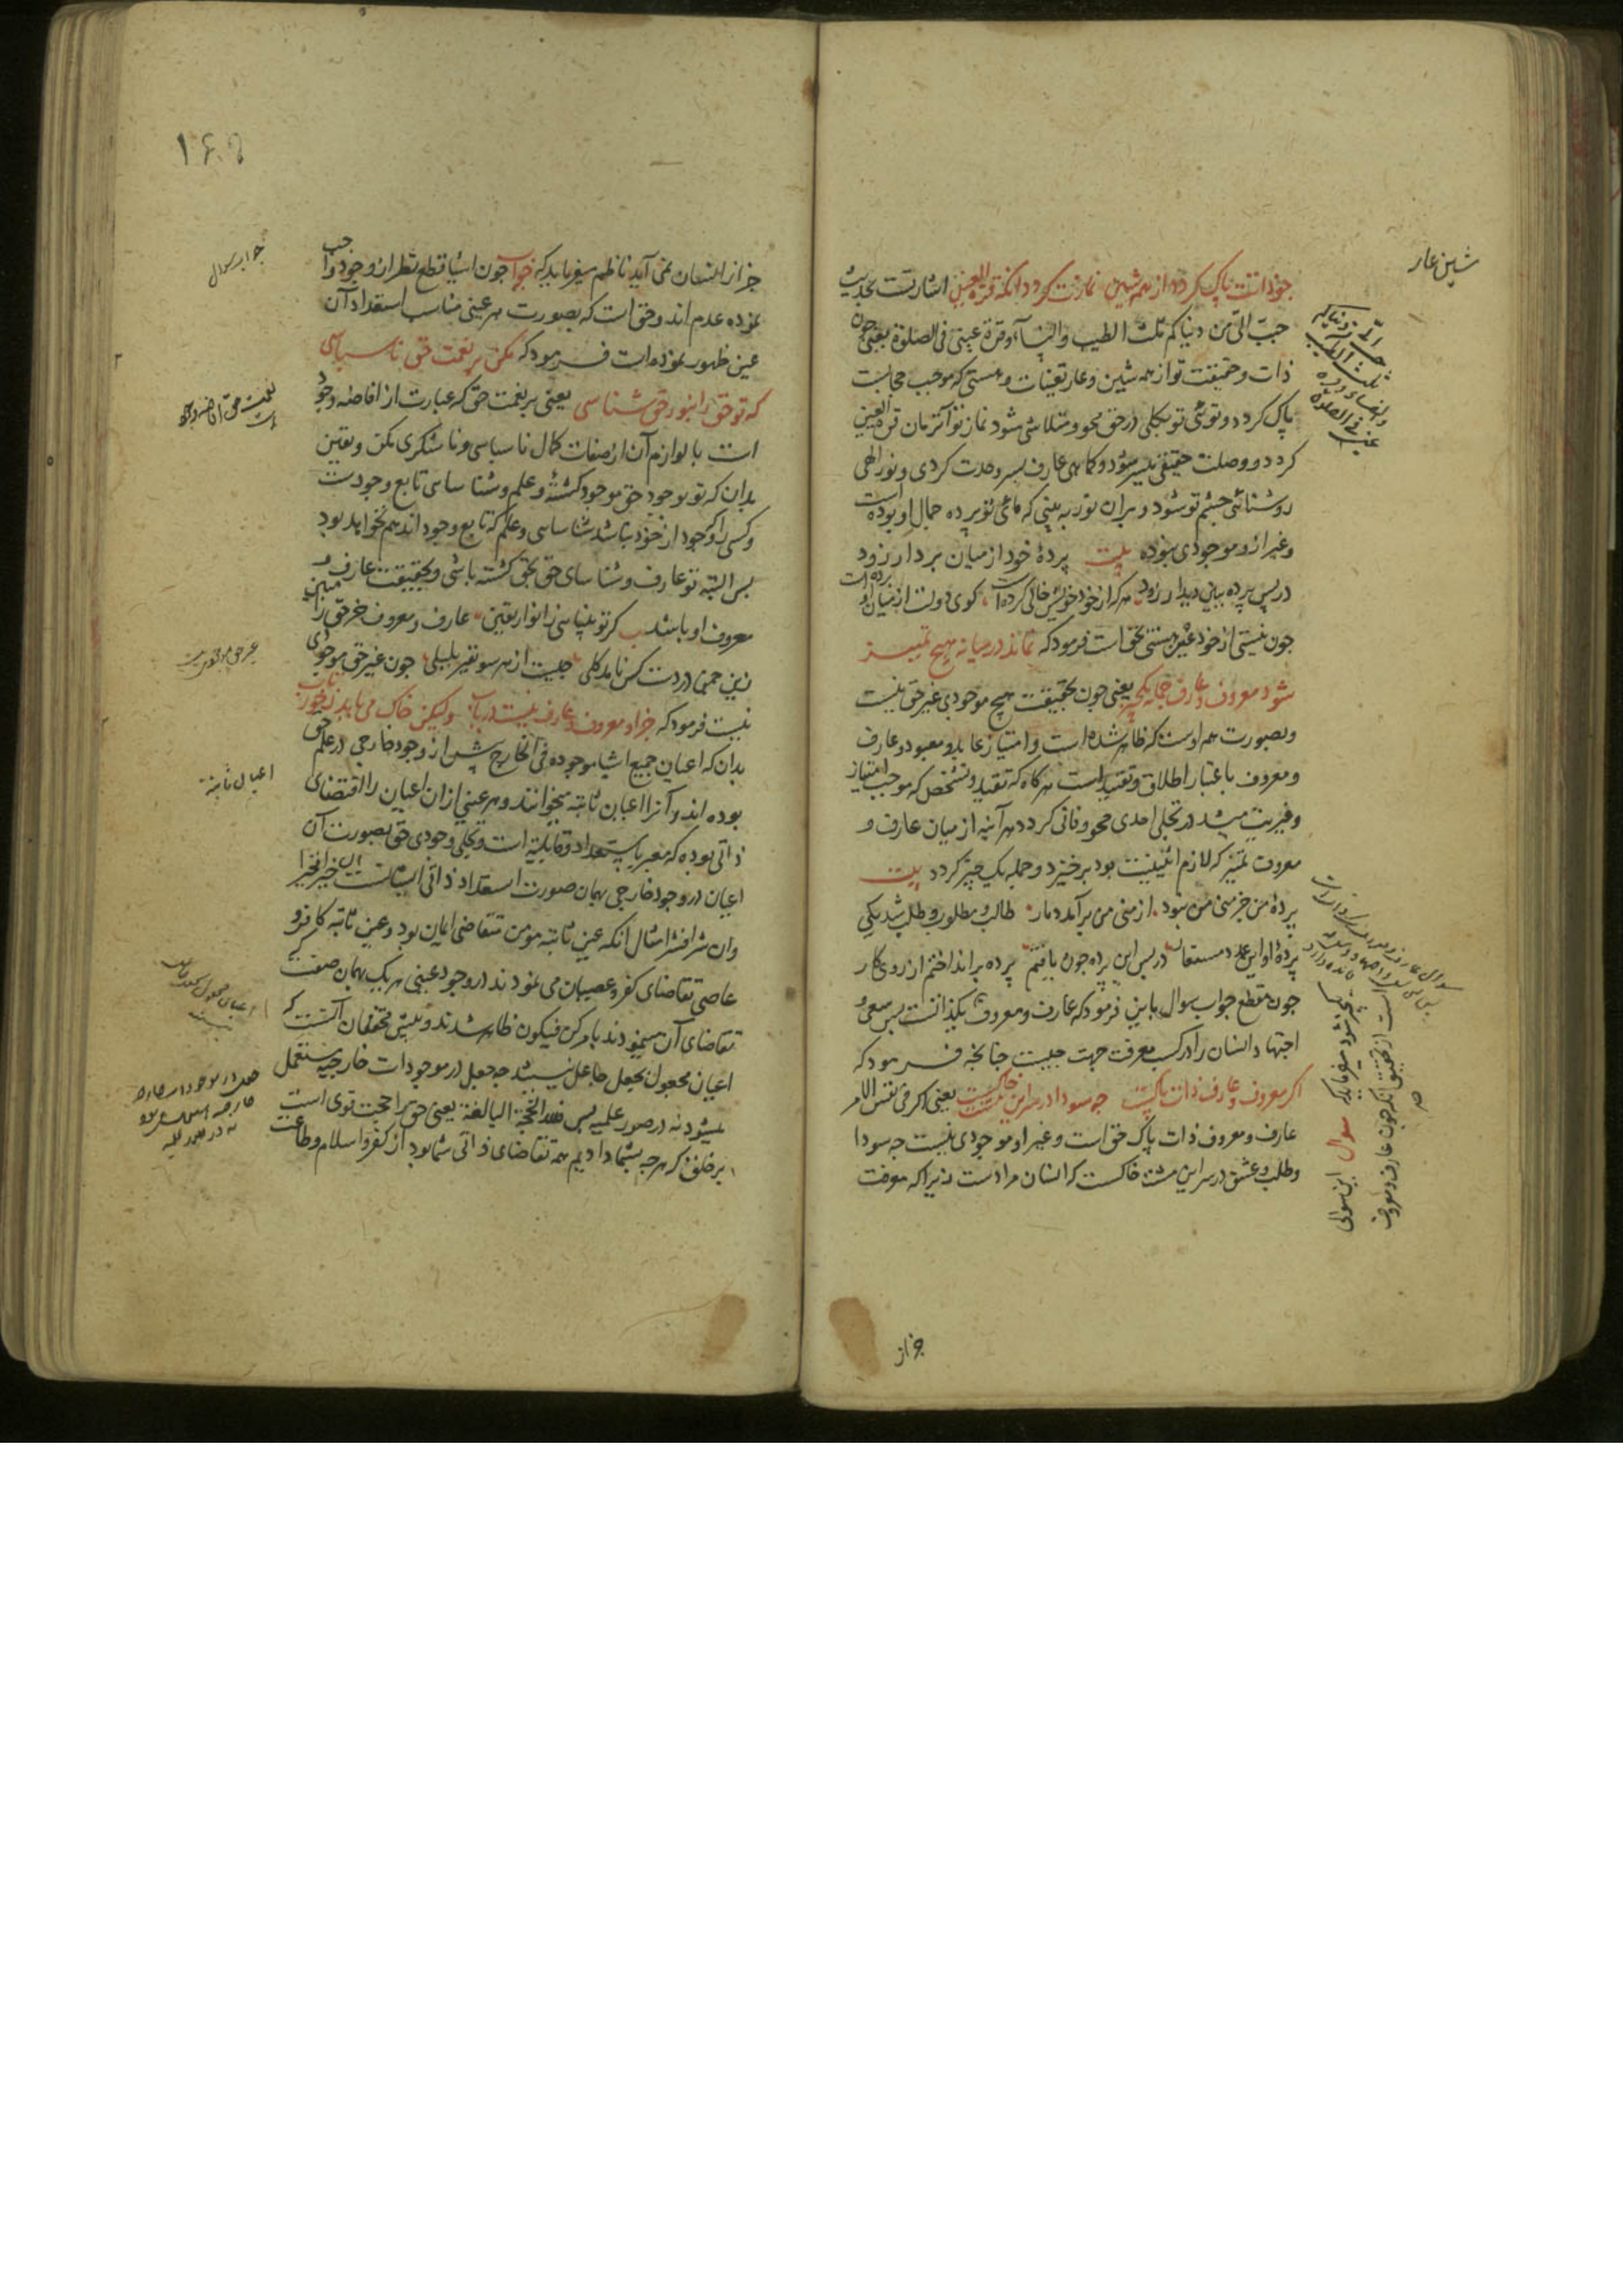 شین عار
چو ذاتت پاک کردد از همه شین نمازت کردد آنکه قرة العین اشارتست بحدیث
حبب الیّ من دنیاکم ثلث الطیب والنساء وقرة عینی فی الصلوة یعنی چون
ذات و حقیقت تو از همه شین و عار تعینات و هستی که موجب حجابست
پاک کردد و توئی تو بکلی در حق محو و متلاشی شود نماز تو آنزمان قرة العین
کردد و وصلت حقیقی میسر شود و کاهی عارف بسر وحدت کردی و نور الهی
روشنائی چشم تو شود و بدان نور به بینی که مائی تو پرده جمال او بوده است
و غیر از و موجودی نبوده بیت پردهٔ خود از میان بردار زود
در پس پرده ببین دیدار زود هر که از خود خویش خالی کرده است کوی دولت از میان او برده است
چون نیستی از خود عین هستی بحق است فرمود که نماند در میانه هیچ تمییز
شود معروف و عارف جمله یکچیز یعنی چون بحقیقت هیچ موجودی غیر حق نیست
و بصورت همه اوست که ظاهر شده است و امتیاز عابد و معبود و عارف
و معروف باعتبار اطلاق و تقید است هرکاه که تقید و تشخص که موجب امتیاز
و غیریت میشد در تجلی احدی محو و فانی کردد هر آینه از میان عارف و
معروف تمییز که لازم اثنینیت بود برخیزد و جمله یک چیز کردد بیت
پردهٔ من جز منی من نبود از منی من برآمد دمار طالب و مطلوب و طلب شد یکی
پرده او این همه مستعار در پس این پرده چون یافتم پرده برانداختم از روی کار
چون مقطع جواب سوال باین فرمود که عارف و معروف یکذاتست پس سعی و
اجتهاد انسان را در کسب معرفت جهت چیست چنانچه فرمود که
اکر معروف و عارف ذات پاکست چه سودا در سر این مشت خاکست یعنی اکر فی نفس الامر
عارف و معروف ذات پاک حق است و غیر او موجودی نیست چه سودا
و طلب و عشق در سر این مشت خاکست که انسان مراد است زیرا که معرفت
سوال این سوالی
است از تحقیق آنکه چون عارف و معروف
جز از
۱۶۹
جواب سوال
جز از انسان نمی آید ناظم میفرماید که جواب چون اشیا قطع نظر از وجود واجب
نموده عدم اند و حق است که بصورت هر عینی مناسب استعداد آن
عین ظهور نموده است فرمود که مکن بر نعمت حق ناسپاسی
که تو حق را بنور حق شناسی یعنی بر نعمت حق که عبارت از افاضه وجود
است با لوازم آن از صفات کمال ناسپاسی و ناشکری مکن و یقین
بدان که تو بوجود حق موجود کشتهٔ و علم و شناسائی تابع وجودست
و کسی را که وجود از خود نباشد شناسائی و علم که تابع وجود اند هم نخواهد بود
پس البته تو عارف و شناسای حق بحق کشته باشی و بحقیقت عارف و
معروف او باشد بیت کر تو بشناسی ز انوار یقین عارف و معروف جز حق را مبین
زین چمن در دست کس ناید کلی چیست از هر سو نفیر بلبلی چون غیر حق موجودی
نیست فرمود که جز او معروف و عارف نیست دریاب ولیکن خاک می یابد ز خور تاب
بدان که اعیان جمیع اشیا موجوده فی الخارج پیش از وجود خارجی در علم حق
بوده اند و آنرا اعیان ثابته میخوانند و هر عینی از ان اعیان را اقتضای
ذاتی بوده که معبر باستعداد و قابلیة است و تجلی وجودی حق بصورت آن
اعیان در وجود خارجی بهمان صورت استعداد ذاتی ایشانست ان خیرا فخیرا
وان شرا فشرا مثال آنکه عین ثابته مومن متقاضی ایمان بود و عین ثابته کافر و
عاصی تقاضای کفر و عصیان می نمودند در وجود عینی هر یک بهمان صفت که
تقاضای آن مینمودند بامر کن فیکون ظاهر شدند و پیش محققان آنست که
اعیان مجعول بجعل جاعل نیستند چه جعل در موجودات خارجیه مستعمل
میشود نه در صور علمیه پس فلله الحجة البالغة یعنی حق را حجت قوی است
بر خلق که هرچه بشما دادیم همه تقاضای ذاتی شما بود از کفر و اسلام و طاعت
غیر حق موجودی نیست
اعیان ثابته